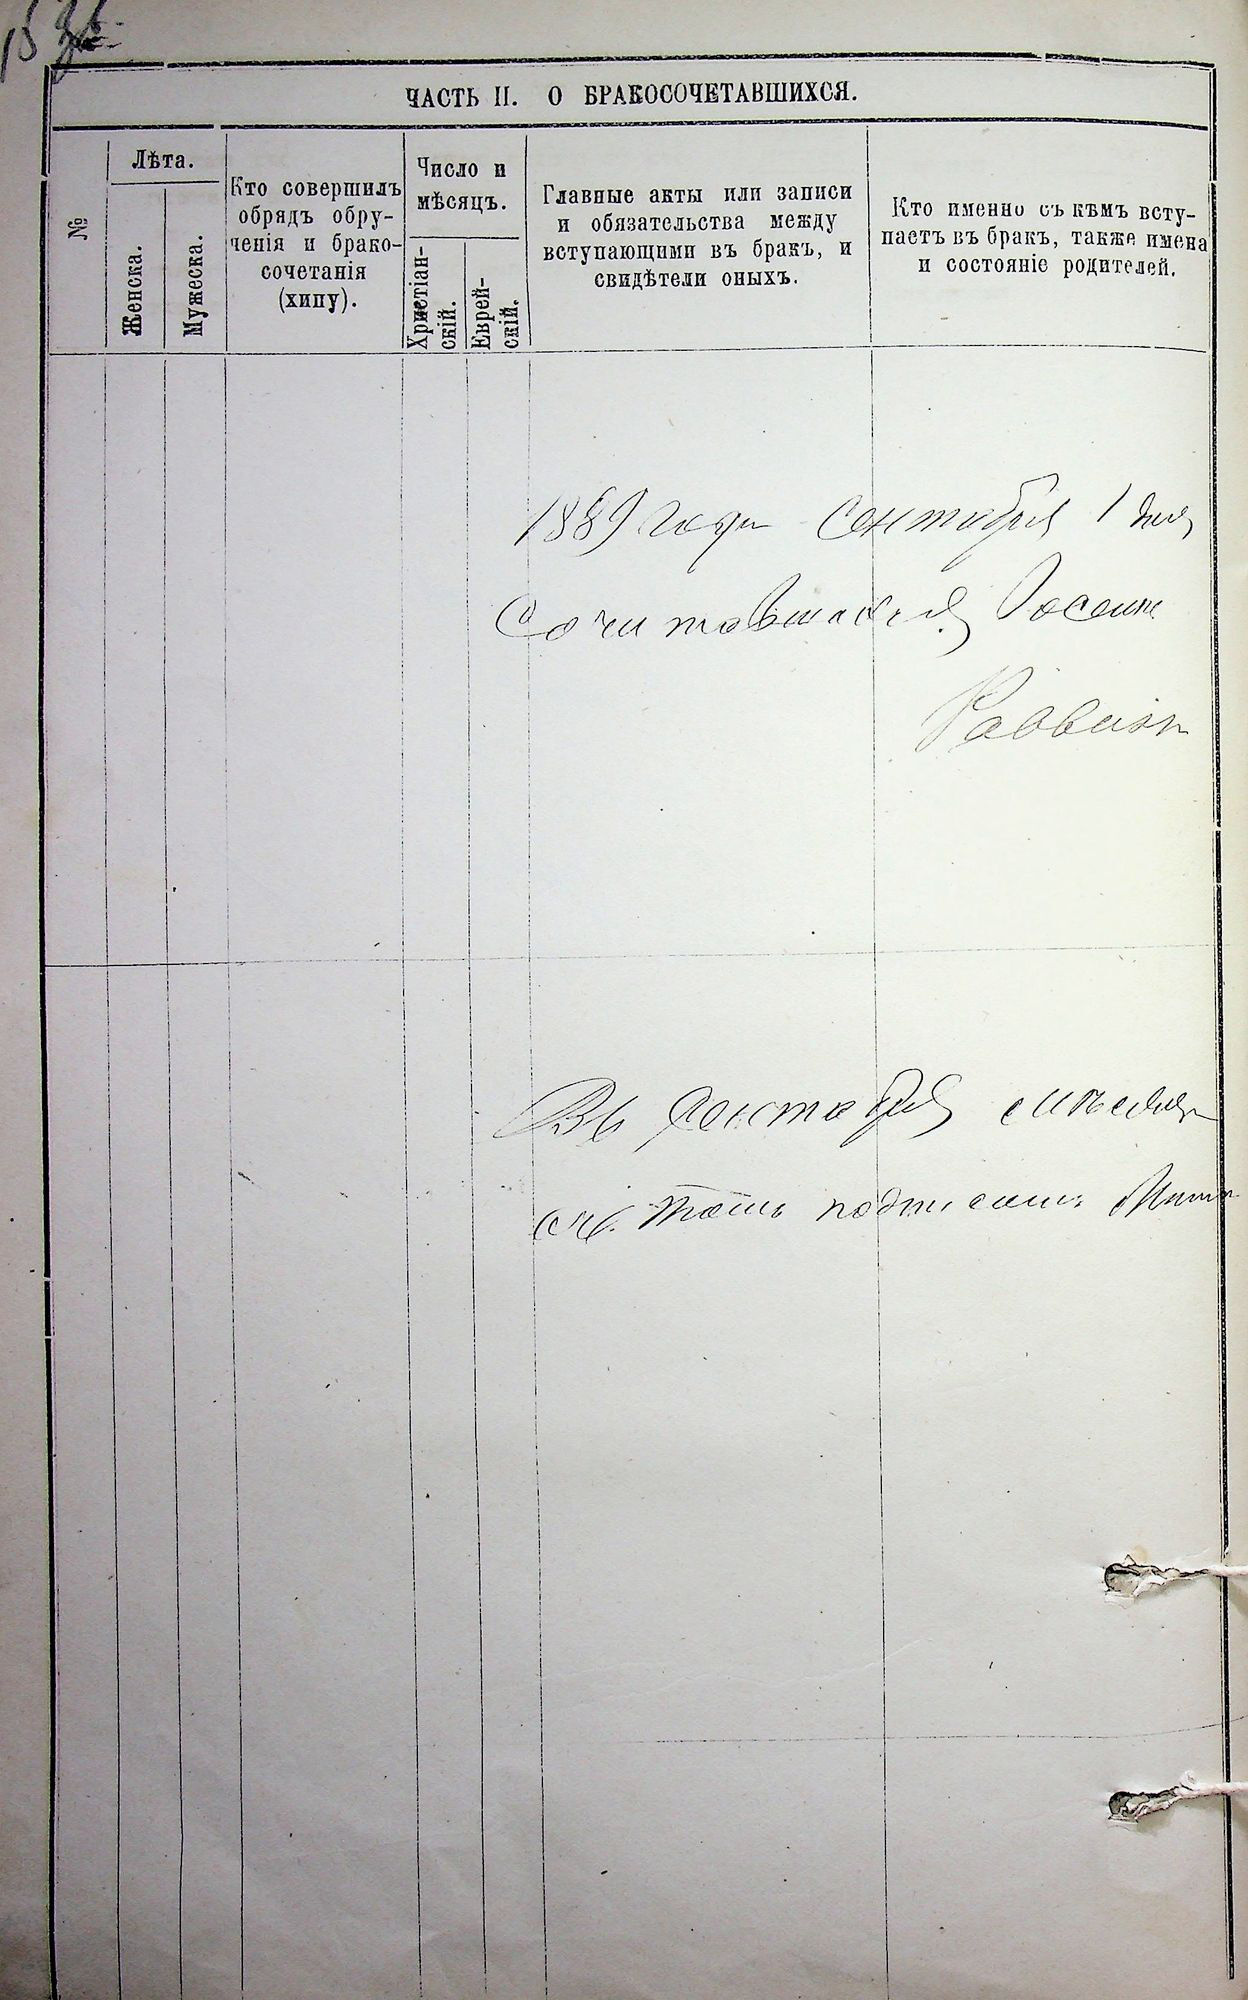 ЧАСТЬ II. О БРАКОСОЧЕТАВШИХСЯ.
№
Лѣта.
Женска.
Мужеска.
Кто совершилъ
обрядъ обру-
ченія и брако-
сочетанія
(хипу).
Число и
мѣсяцъ.
Христіан-
скій.
Еврей-
скій.
Главные акты или записи
и обязательства между
вступающими въ бракъ, и
свидѣтели оныхъ.
Кто именно съ кѣмъ всту-
паетъ въ бракъ, также имена
и состояніе родителей.
1889 года Сентября 1 дня
Раввинъ
Въ Сентябрѣ мѣсяцѣ